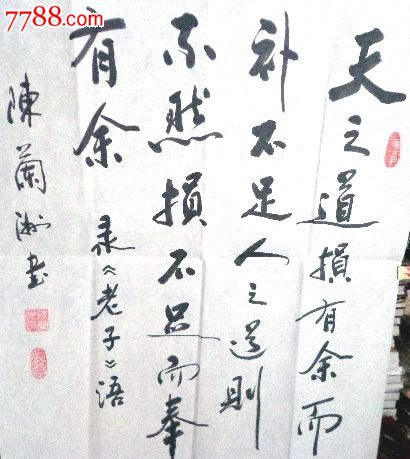 7788.com
天之道損有余而
补不足人之道則
不然損不足而奉
有余 录《老子》语
陳蘭洲书